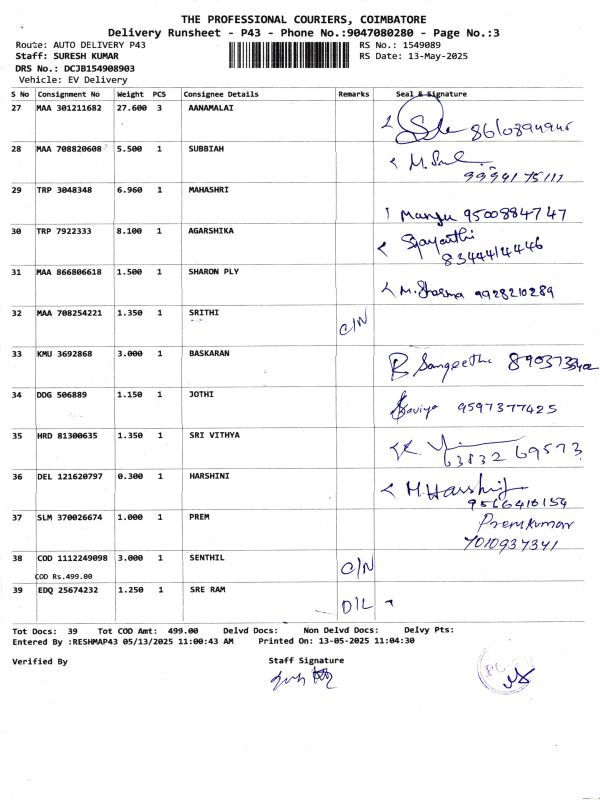 THE PROFESSIONAL COURIERS, COIMBATORE
Delivery Runsheet - P43 - Phone No.:9047080280 - Page No.:3
Route: AUTO DELIVERY P43 RS No.: 1549089
Staff: SURESH KUMAR RS Date: 13-May-2025
DRS No.: DCJB154908903
Vehicle: EV Delivery
S No Consignment No Weight PCS Consignee Details Remarks Seal & Signature
27 MAA 301211682 27.600 3 AANAMALAI
28 MAA 708820608 5.500 1 SUBBIAH
29 TRP 3048348 6.960 1 MAHASHRI Manju 9500884747
30 TRP 7922333 8.100 1 AGARSHIKA
8344414446
31 MAA 866806618 1.500 1 SHARON PLY M. Sharma 9928210289
32 MAA 708254221 1.350 1 SRITHI C/N
33 KMU 3692868 3.000 1 BASKARAN R Sangeetha
34 DDG 506889 1.150 1 JOTHI Kaviya 9597377425
35 HRD 81300635 1.350 1 SRI VITHYA
63832 69573
36 DEL 121620797 0.300 1 HARSHINI M. Harshini
9566410154
37 SLM 370026674 1.000 1 PREM Premkumar
7010937341
38 COD 1112249098 3.000 1 SENTHIL C/N
COD Rs.499.00
39 EDQ 25674232 1.250 1 SRE RAM D/L
Tot Docs: 39 Tot COD Amt: 499.00 Delvd Docs: Non Delvd Docs: Delvy Pts:
Entered By :RESHMAP43 05/13/2025 11:00:43 AM Printed On: 13-05-2025 11:04:30
Verified By Staff Signature